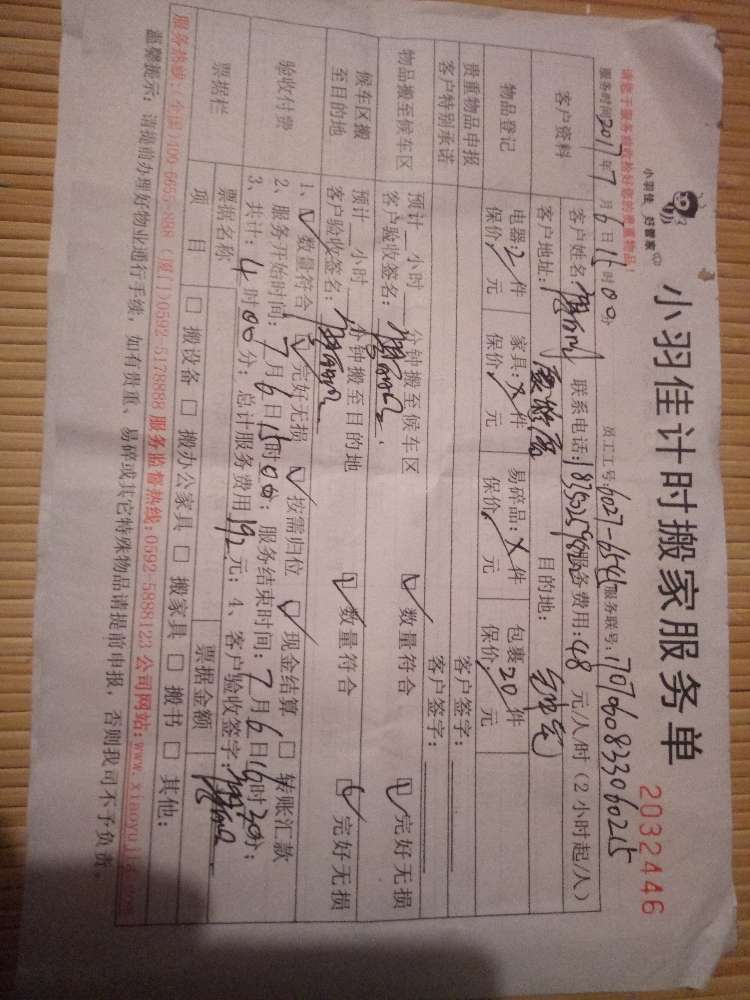 小羽佳 好管家
小羽佳计时搬家服务单
2032446
请您于服务前收拾好您的贵重物品!
服务时间2017年7月6日15时00分 员工工号:6027-6545 服务联号:
客户资料 客户姓名: 联系电话: 服务费用:48元/人/时(2小时起/人)
客户地址: 目的地:
物品登记 电器:2件 家具:X件 易碎品:X件 包裹20件
保价 元 保价 元 保价 元 保价 元
贵重物品申报 客户签字:
客户特别承诺 客户签字:
物品搬至候车区 预计 小时 分钟搬至候车区 数量符合 完好无损
客户验收签名:
候车区搬至目的地 预计 小时 分钟搬至目的地 数量符合 完好无损
客户验收签名:
验收付费 1、数量符合 完好无损 按需归位 现金结算 转账汇款
2、服务开始时间:7月6日15时00分;服务结束时间:7月6日
3、共计:4时00分;总计服务费用192元;4、客户验收签字:
票据栏 票据名称 票据金额
项目 搬设备 搬办公家具 搬家具 搬书 其他:
服务热线:全国)400-6655-888 (厦门)0592-5178888 服务监督热线:0592-5888123 公司网站:
温馨提示:请提前办理好物业通行手续,如有贵重、易碎或其它特殊物品请提前申报,否则我司不予负责。